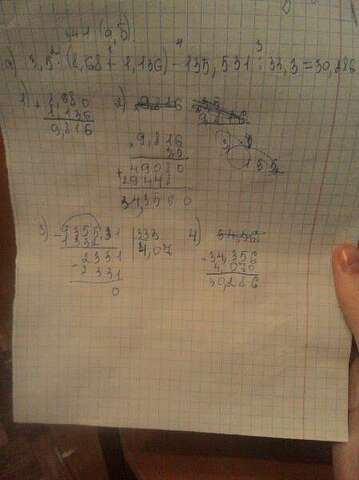 а) 3,5 · (8,68 + 1,136) - 135,531 : 33,3 = 30,286
1) + 8,680
1,136
9,816
2)
× 9,816
3,5
49080
+ 29448
34,3560
3) - 1355,31 | 333
1332 | 4,07
2331
- 2331
0
4)
- 34,356
4,070
30,286